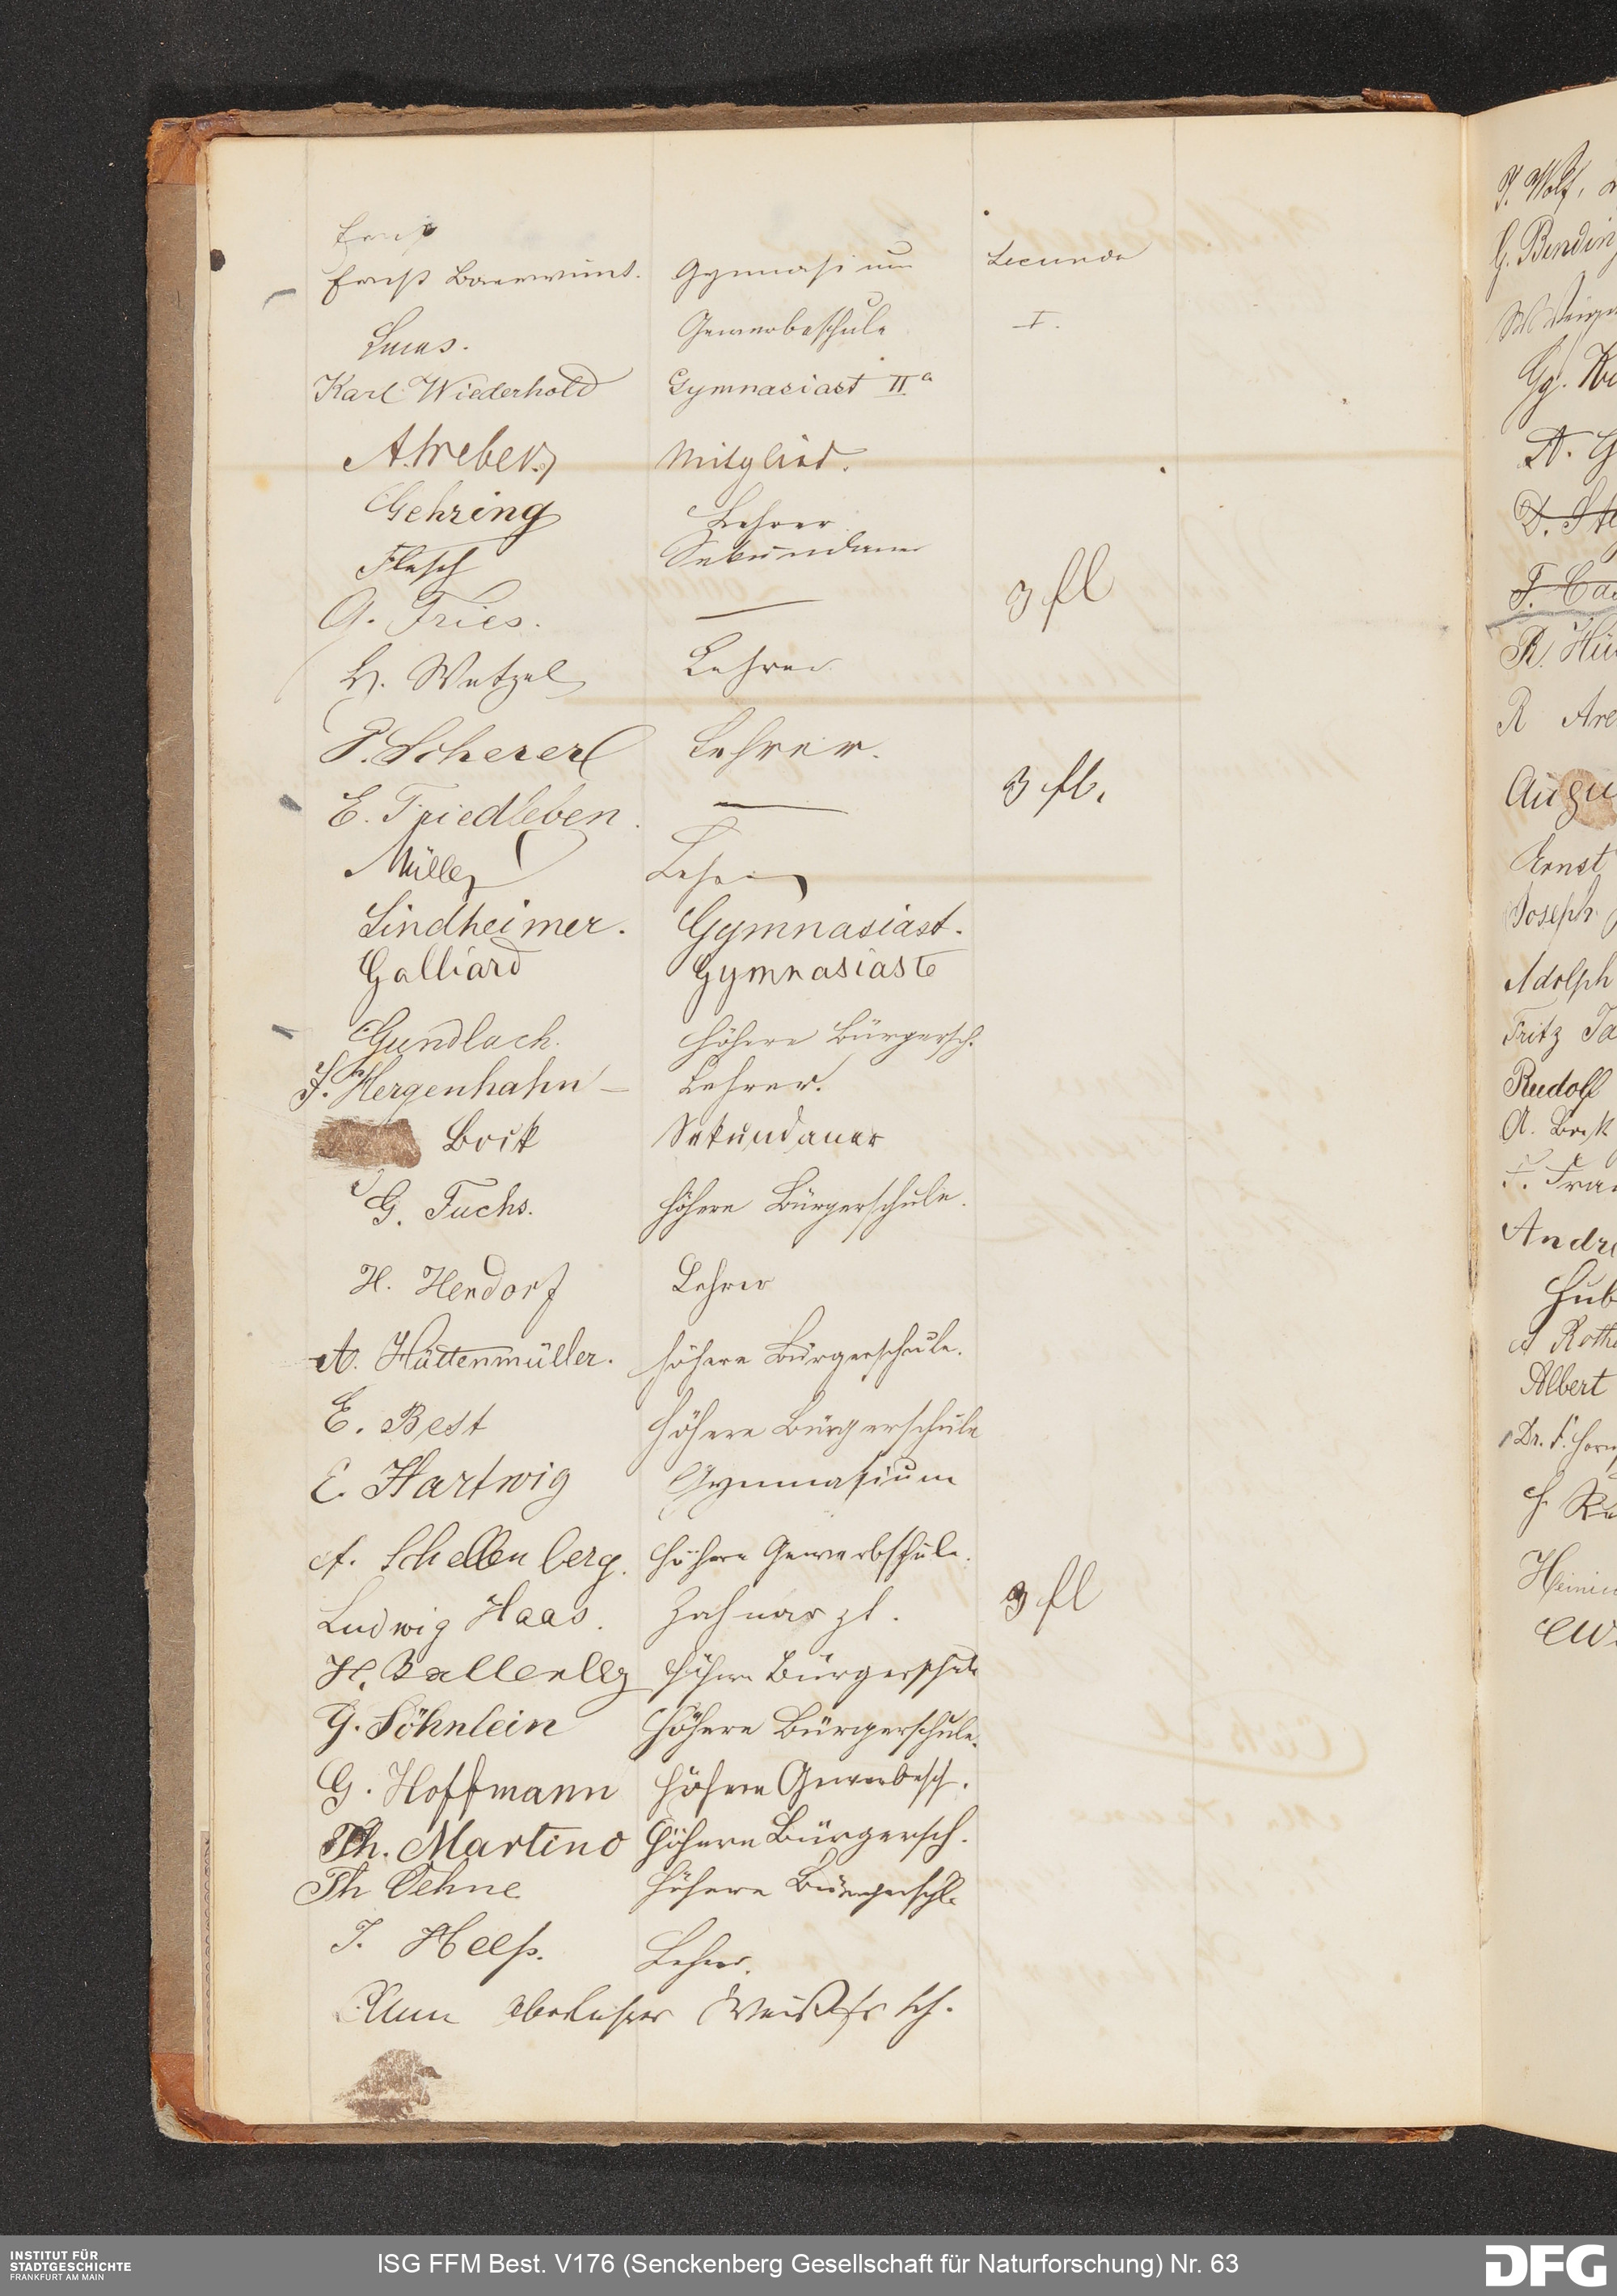 Ernst
Ernst Baerwind. Gymnasium Secunda
Lucas. Gewerbeschule I.
Karl Wiederhold Gymnasiast II a
A. Weber. Mitglied.
Gehring Lehrer
Flesch Sekundaner
A. Fries. — 3 fl
H. Wetzel Lehrer
P. Scherer Lehrer.
E. Friedleben. — 3 fl.
Müller Lehrer
Lindheimer. Gymnasiast.
Galliard Gymnasiast
Gundlach. höhere Bürgersch.
J. Hergenhahn — Lehrer.
Bock Sekundaner
G. Fuchs. höhere Bürgerschule.
H. Hendorf Lehrer
A. Hüttenmüller. höhere Bürgerschule.
E. Best höhere Bürgerschule
E. Hartwig Gymnasium
A. Schellenberg. höhere Gewerbschule.
Ludwig Haas. Zahnarzt. 3 fl
H. höhere Bürgerschule
G. Söhnlein höhere Bürgerschule.
G. Hoffmann höhere Gewerbesch.
Th. Martino höhere Bürgersch.
Th Oehne höhere Bürgerschl.
J. Helfs. Lehrer.
Oberlehrer sch.
P. Wolf,
G. Binding
A. G
D. Ste
F. Ca
R. Hü
R Are
Augu
Ernst
Joseph
Adolph
Fritz Ja
Rudolf
A. Bock
F. Fra
Andre
Hub
A Roth
Albert
Dr. F.
INSTITUT FÜR
STADTGESCHICHTE
FRANKFURT AM MAIN
ISG FFM Best. V176 (Senckenberg Gesellschaft für Naturforschung) Nr. 63
DFG